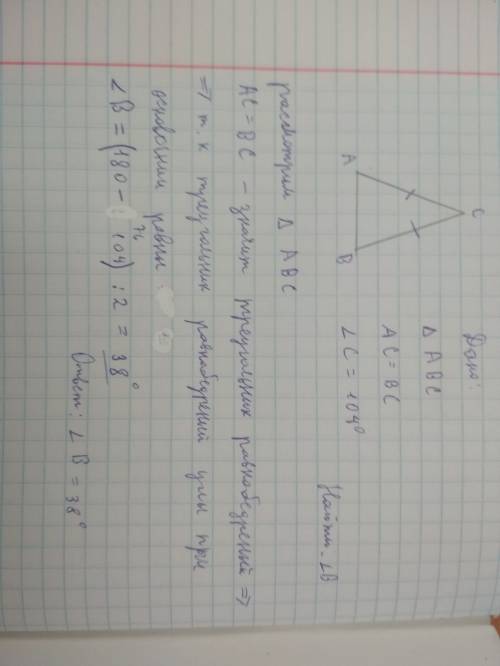 Дано:
Δ ABC
AC = BC
∠C = 104°
Найти - ∠B
C
A
B
рассмотрим Δ ABC
AC = BC - значит треугольник равнобедренный =>
=> т. к треугольник равнобедренный углы при
основании равны
∠B = (180 - 104) : 2 = 38°
Ответ: ∠B = 38°